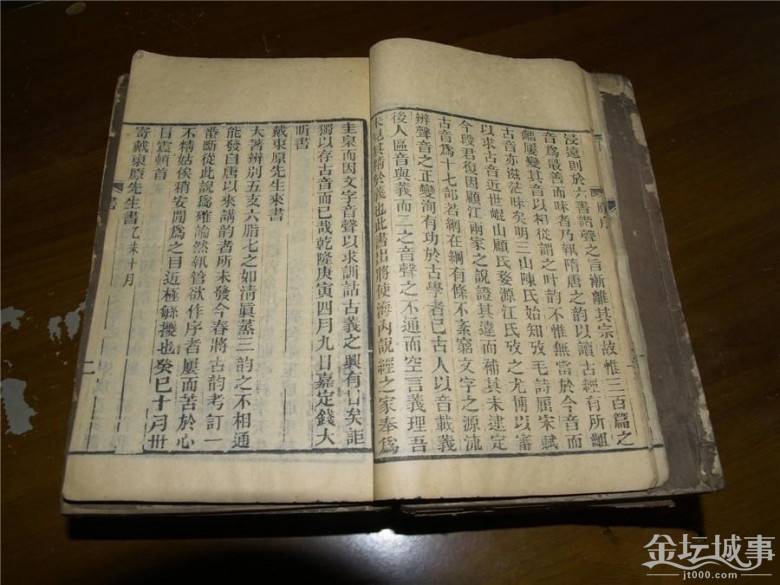 浸遠則於六書諧聲之旨漸離其宗故惟三百篇之
音爲最善而昧者乃執隋唐之韵以讀古經有所齟
齬屢變其音以相從謂之叶韵不惟無當於今音而
古音亦滋茫昧矣明三山陳氏始知攷毛詩屈宋賦
以求古音近世崐山顧氏婺源江氏攷之尤博以審
今段君復因顧江兩家之說證其違而補其未逮定
古音爲十七部若網在綱有條不紊窮文字之源流
辨聲音之正變洵有功於古學者已古人以音載義
後人區音與義而二之音聲之不通而空言義理吾
未見其精於義也此書出將使海内說經之家奉爲
圭臬而因文字音聲以求訓詁古義之興有日矣詎
獨以存古音而已哉乾隆庚寅四月九日嘉定錢大
昕書
戴東原先生來書
大著辨別五支六脂七之如清眞蒸三韵之不相通
能發自唐以來講韵者所未發今春將古韵考訂一
番斷從此說爲確論然執管欲作序者屢而苦於心
不精姑俟稍安閒爲之目近極擾也癸巳十月卅
日震頓首
寄戴東原先生書乙未十月
書
二
金坛城事
jt000.com